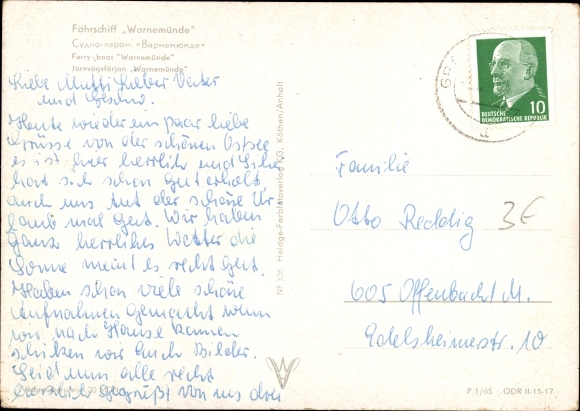 Fährschiff „Warnemünde"
Судно-паром. «Варнемюнде»
Ferry-boas "Warnemünde"
Järnvägsfärjan „Warnemünde"
Liebe Mutti Lieber Vater
und Geschw.
Heute wieder ein paar liebe
Grüsse von der schönen Ostsee
es ist hier herrlich und
hat sich schon gut erholt,
auch uns tut der schöne Ur
laub mal gut. Wir haben
ganz herrliches Wetter die
Sonne meint es recht gut.
Haben schon viele schöne
Aufnahmen gemacht wenn
wir nach Hause kommen
schicken wir Euch Bilder.
Seid nun alle recht
herzlich gegrüßt von uns drei
NF 536 Heldge-Farbfotoverlag KG, Köthen/Anhalt
10
DEUTSCHE
DEMOKRATISCHE REPUBLIK
Familie
Otto Reddig
3€
605 Offenbach/M.
Edelsheimerstr. 10
P 1/65 · ODR II-15-17